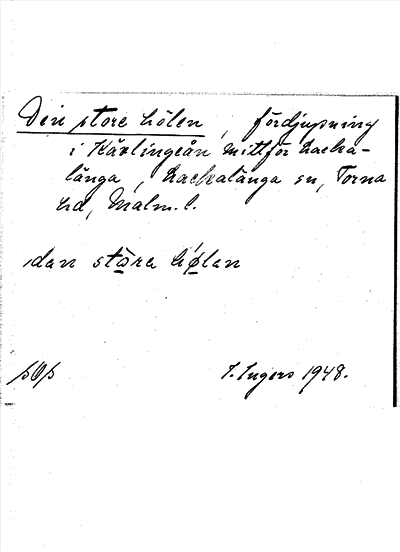 Den store hölen, fördjupning
i Kävlingeån mittför Hacka-
länga, Hackalänga sn, Torna
hd, Malm. l.
dan störa hølan
I. Ingers 1948.